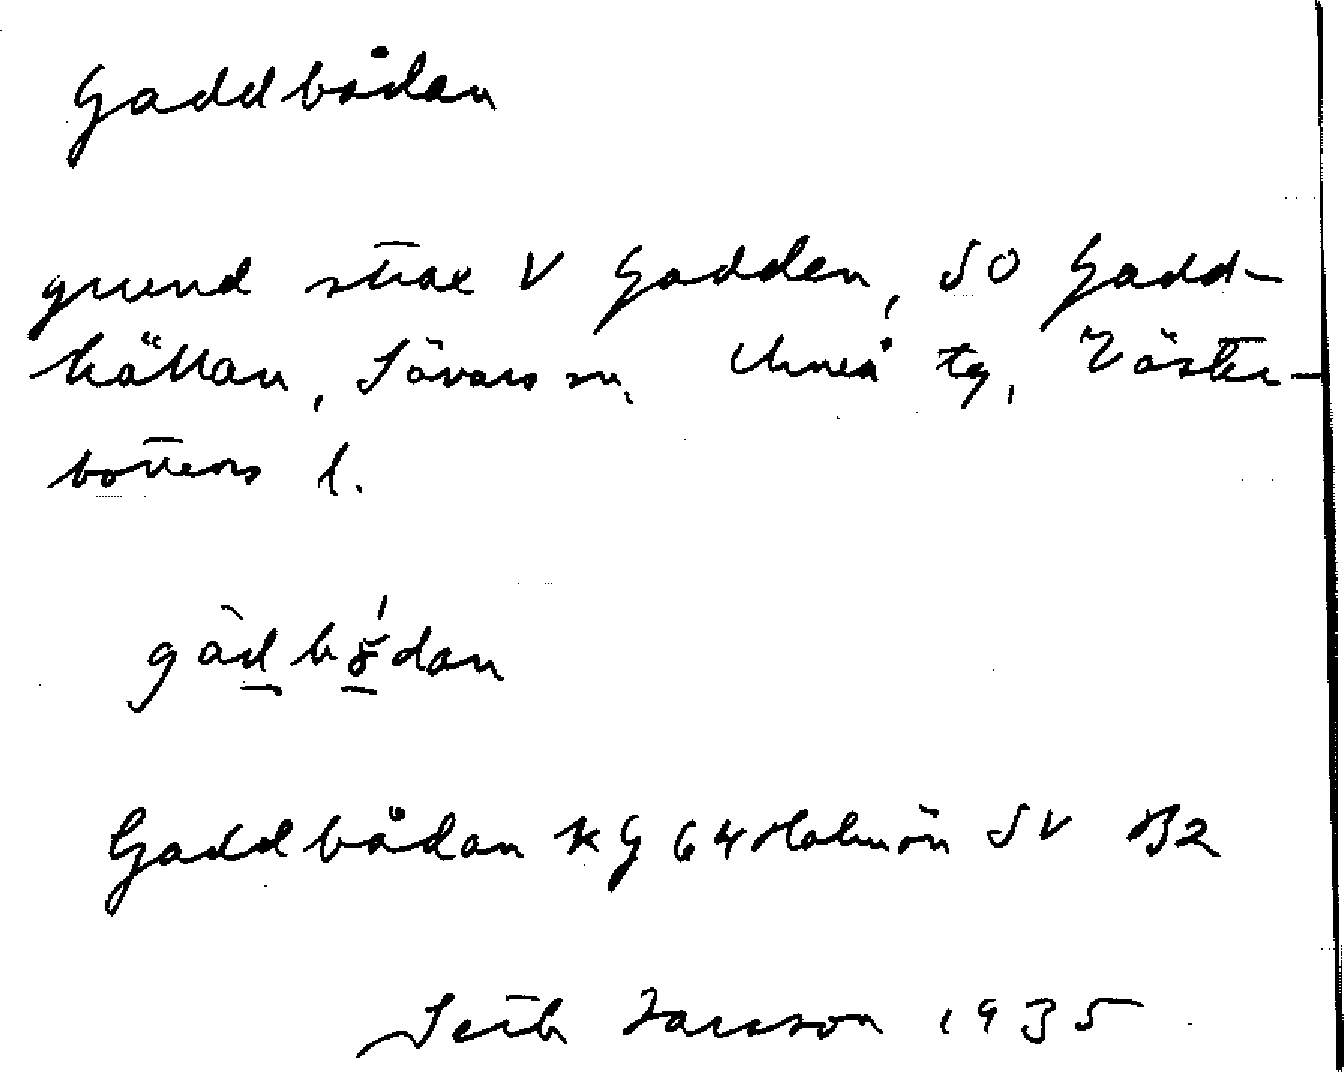 Gaddbådan
grund strax V Gadden, SO Gadd-
hällan, Sävars sn, Umeå tg, Väster-
bottens l.
Gaddbådan KG 64 Holmön SV B2
Seth Jansson 1935